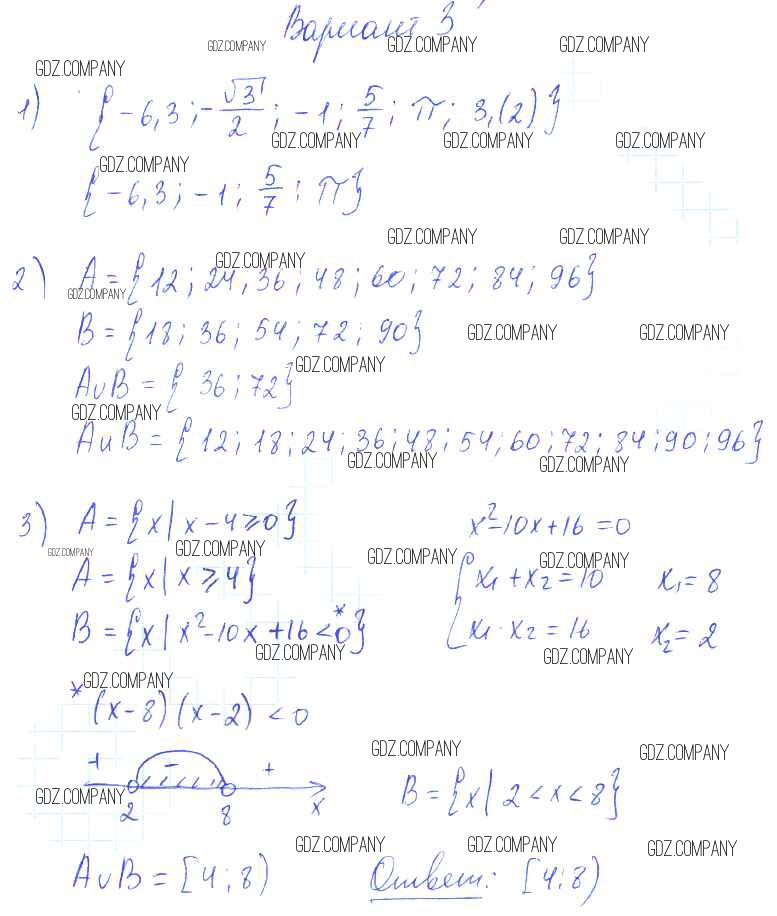 Вариант 3
GDZ.COMPANY GDZ.COMPANY GDZ.COMPANY
GDZ.COMPANY
1) {-6,3; -√3/2; -1; 5/7; π; 3,(2)}
GDZ.COMPANY GDZ.COMPANY GDZ.COMPANY
GDZ.COMPANY
{-6,3; -1; 5/7; π}
GDZ.COMPANY GDZ.COMPANY
GDZ.COMPANY
2) A = {12; 24, 36; 48; 60; 72; 84; 96}
GDZ.COMPANY
B = {18; 36; 54; 72; 90}
GDZ.COMPANY GDZ.COMPANY
GDZ.COMPANY
A∪B = { 36; 72}
GDZ.COMPANY
A и B = {12; 18; 24; 36; 48; 54; 60; 72; 84; 90; 96}
GDZ.COMPANY GDZ.COMPANY
3) A = {x | x - 4 ≥ 0} x² - 10x + 16 = 0
GDZ.COMPANY GDZ.COMPANY GDZ.COMPANY GDZ.COMPANY
A = {x | x ≥ 4} { x₁ + x₂ = 10 x₁ = 8
B = {x | x² - 10x + 16 < 0*} x₁ · x₂ = 16 x₂ = 2
GDZ.COMPANY GDZ.COMPANY
GDZ.COMPANY
* (x - 8)(x - 2) < 0
GDZ.COMPANY GDZ.COMPANY
+ - +
GDZ.COMPANY
2 8 x B = {x | 2 < x < 8}
GDZ.COMPANY GDZ.COMPANY GDZ.COMPANY
A∪B = [4; 8) Ответ: [4; 8)